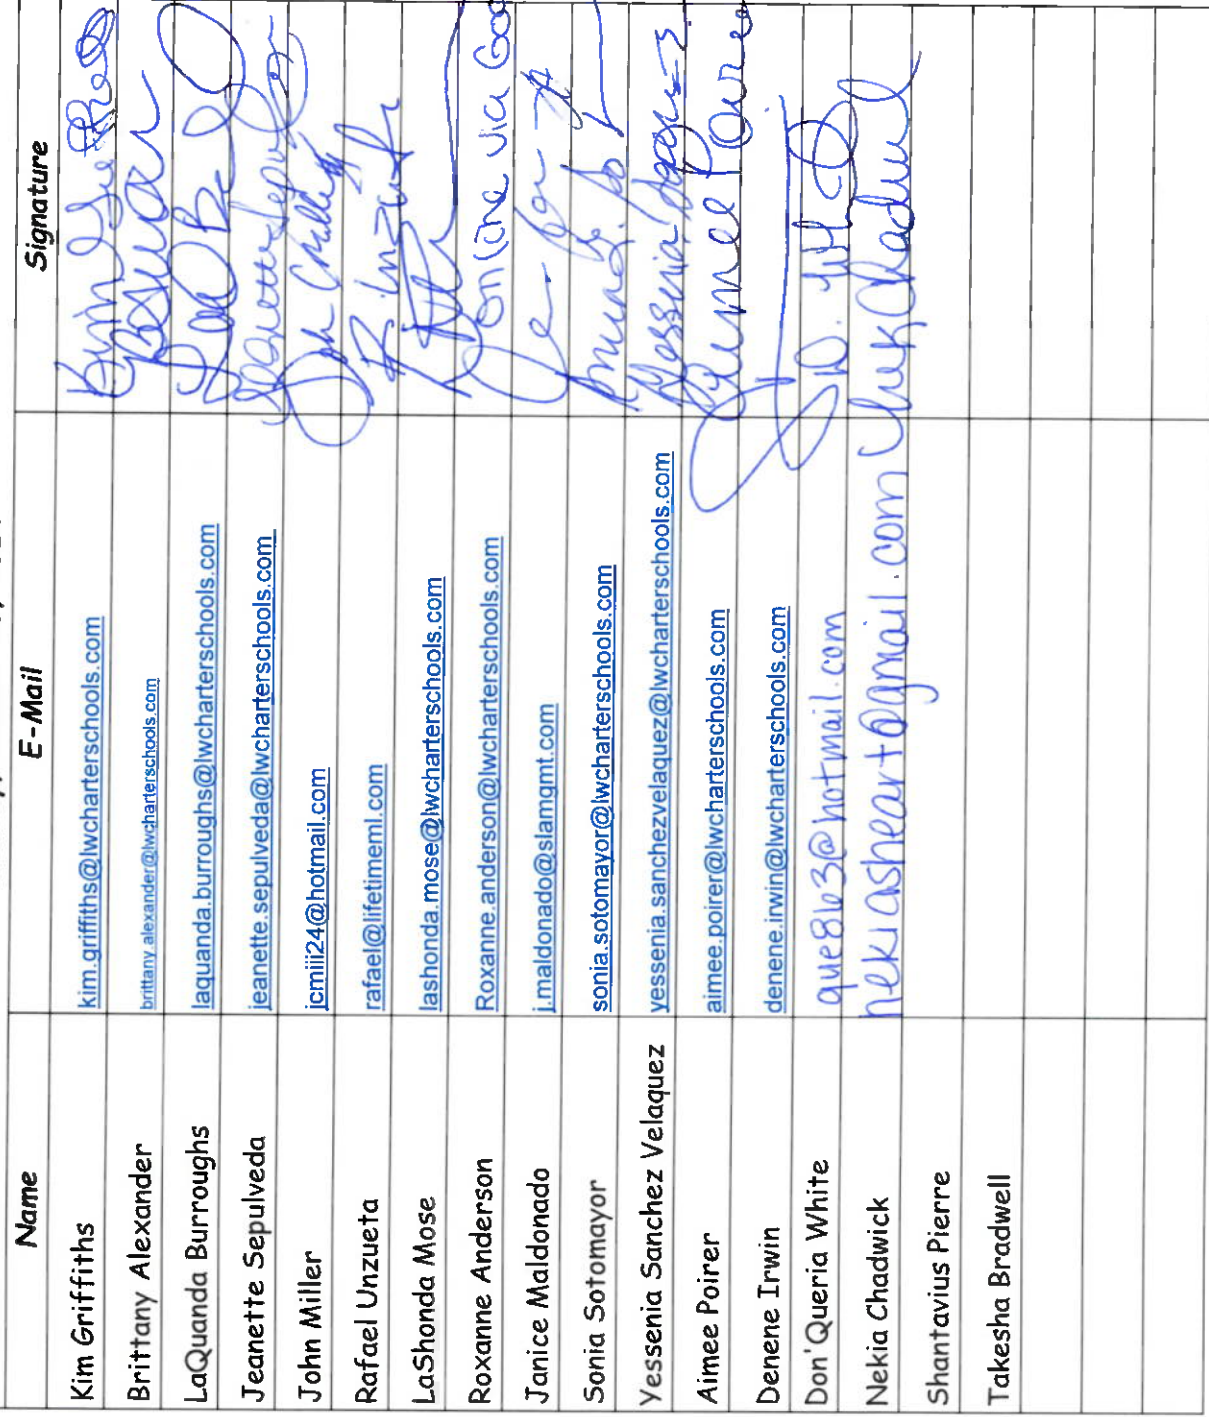 Name E-Mail Signature
Kim Griffiths kim.griffiths@lwcharterschools.com Kim
Brittany Alexander brittany.alexander@lwcharterschools.com
LaQuanda Burroughs laquanda.burroughs@lwcharterschools.com
Jeanette Sepulveda jeanette.sepulveda@lwcharterschools.com
John Miller jcmiii24@hotmail.com John C Miller
Rafael Unzueta rafael@lifetimeml.com
LaShonda Mose lashonda.mose@lwcharterschools.com
Roxanne Anderson Roxanne.anderson@lwcharterschools.com online via Goo
Janice Maldonado j.maldonado@slamgmt.com
Sonia Sotomayor sonia.sotomayor@lwcharterschools.com
Yessenia Sanchez Velaquez yessenia.sanchezvelaquez@lwcharterschools.com Yessenia
Aimee Poirer aimee.poirer@lwcharterschools.com
Denene Irwin denene.irwin@lwcharterschools.com
Don'Queria White que863@hotmail.com
Nekia Chadwick nekiasheart@gmail.com
Shantavius Pierre
Takesha Bradwell